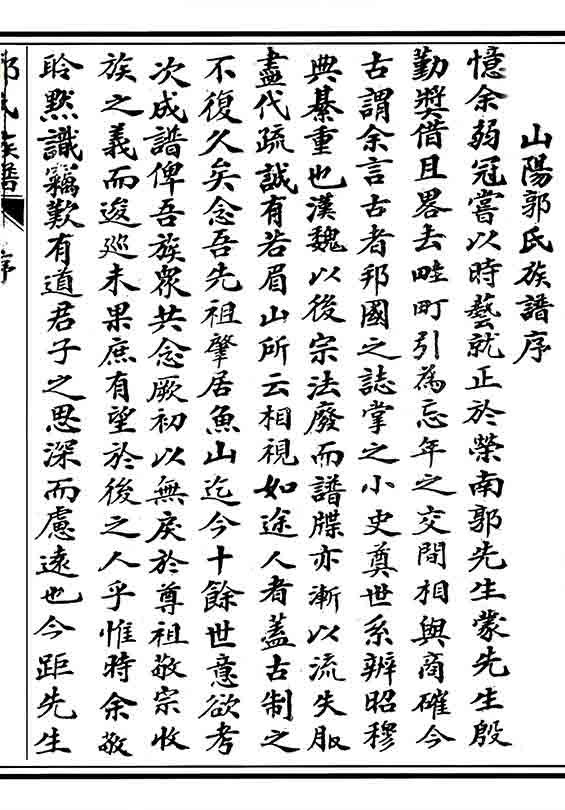 山陽郭氏族譜序
憶余弱冠嘗以時藝就正於榮南郭先生蒙先生殷
勤奬借且畧去畦町引為忘年之交間相與商確今
古謂余言古者邦國之誌掌之小史奠世系辨昭穆
典綦重也漢魏以後宗法廢而譜牒亦漸以流失服
盡代疏誠有若眉山所云相視如途人者蓋古制之
不復久矣念吾先祖肇居魚山迄今十餘世意欲考
次成譜俾吾族衆共念厥初以無戾於尊祖敬宗收
族之義而逡巡未果庶有望於後之人乎惟時余敬
聆默識竊歎有道君子之思深而慮遠也今距先生
郭氏族譜 序